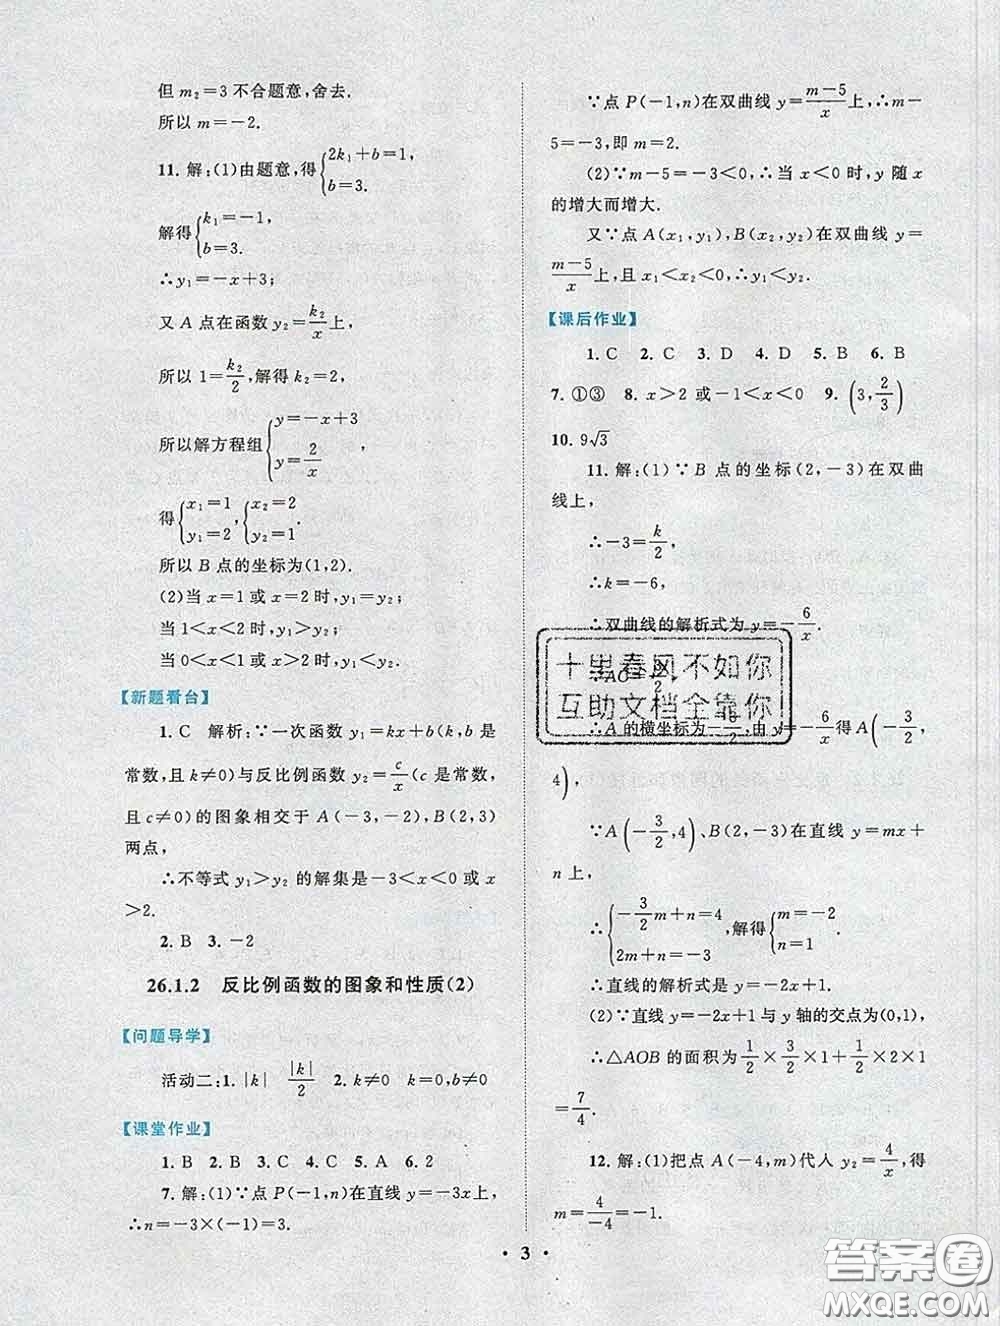 但 m₂=3 不合题意,舍去.
所以 m=-2.
11. 解:(1)由题意,得{2k₁+b=1, b=3.
解得{k₁=-1, b=3.
∴y₁=-x+3;
又 A 点在函数 y₂=k₂/x 上,
所以 1=k₂/2,解得 k₂=2,
所以解方程组{y=-x+3 y=2/x ,
得{x₁=1 y₁=2,{x₂=2 y₂=1.
所以 B 点的坐标为(1,2).
(2)当 x=1 或 x=2 时,y₁=y₂;
当 1<x<2 时,y₁>y₂;
当 0<x<1 或 x>2 时,y₁<y₂.
【新题看台】
1. C 解析:∵一次函数 y₁=kx+b(k,b 是
常数,且 k≠0)与反比例函数 y₂=c/x(c 是常数,
且 c≠0)的图象相交于 A(-3,-2),B(2,3)
两点,
∴不等式 y₁>y₂ 的解集是-3<x<0 或 x
>2.
2. B 3. -2
26.1.2 反比例函数的图象和性质(2)
【问题导学】
活动二:1. |k| |k|/2 2. k≠0 k≠0,b≠0
【课堂作业】
1. B 2. B 3. C 4. C 5. A 6. 2
7. 解:(1)∵点 P(-1,n)在直线 y=-3x 上,
∴n=-3×(-1)=3.
∵点 P(-1,n)在双曲线 y=(m-5)/x 上,∴m-
5=-3,即 m=2.
(2)∵m-5=-3<0,∴当 x<0 时,y 随 x
的增大而增大.
又∵点 A(x₁,y₁),B(x₂,y₂)在双曲线 y=
(m-5)/x 上,且 x₁<x₂<0,∴y₁<y₂.
【课后作业】
1. C 2. C 3. D 4. D 5. B 6. B
7. ①③ 8. x>2 或-1<x<0 9. (3,2/3)
10. 9√3
11. 解:(1)∵B 点的坐标(2,-3)在双曲
线上,
∴-3=k/2,
∴k=-6,
∴双曲线的解析式为 y=-6/x.
十里春风不如你
互助文档全靠你
∴A 的横坐标为-3/2,由 y=-6/x 得 A(-3/2,
4),
∵A(-3/2,4)、B(2,-3)在直线 y=mx+
n 上,
∴{-3/2m+n=4 2m+n=-3,解得{m=-2 n=1.
∴直线的解析式是 y=-2x+1.
(2)∵直线 y=-2x+1 与 y 轴的交点为(0,1),
∴△AOB 的面积为 1/2×3/2×1+1/2×2×1
=7/4.
12. 解:(1)把点 A(-4,m)代入 y₂=4/x,得
m=4/-4=-1.
• 3 •
答案圈
MXQE.COM